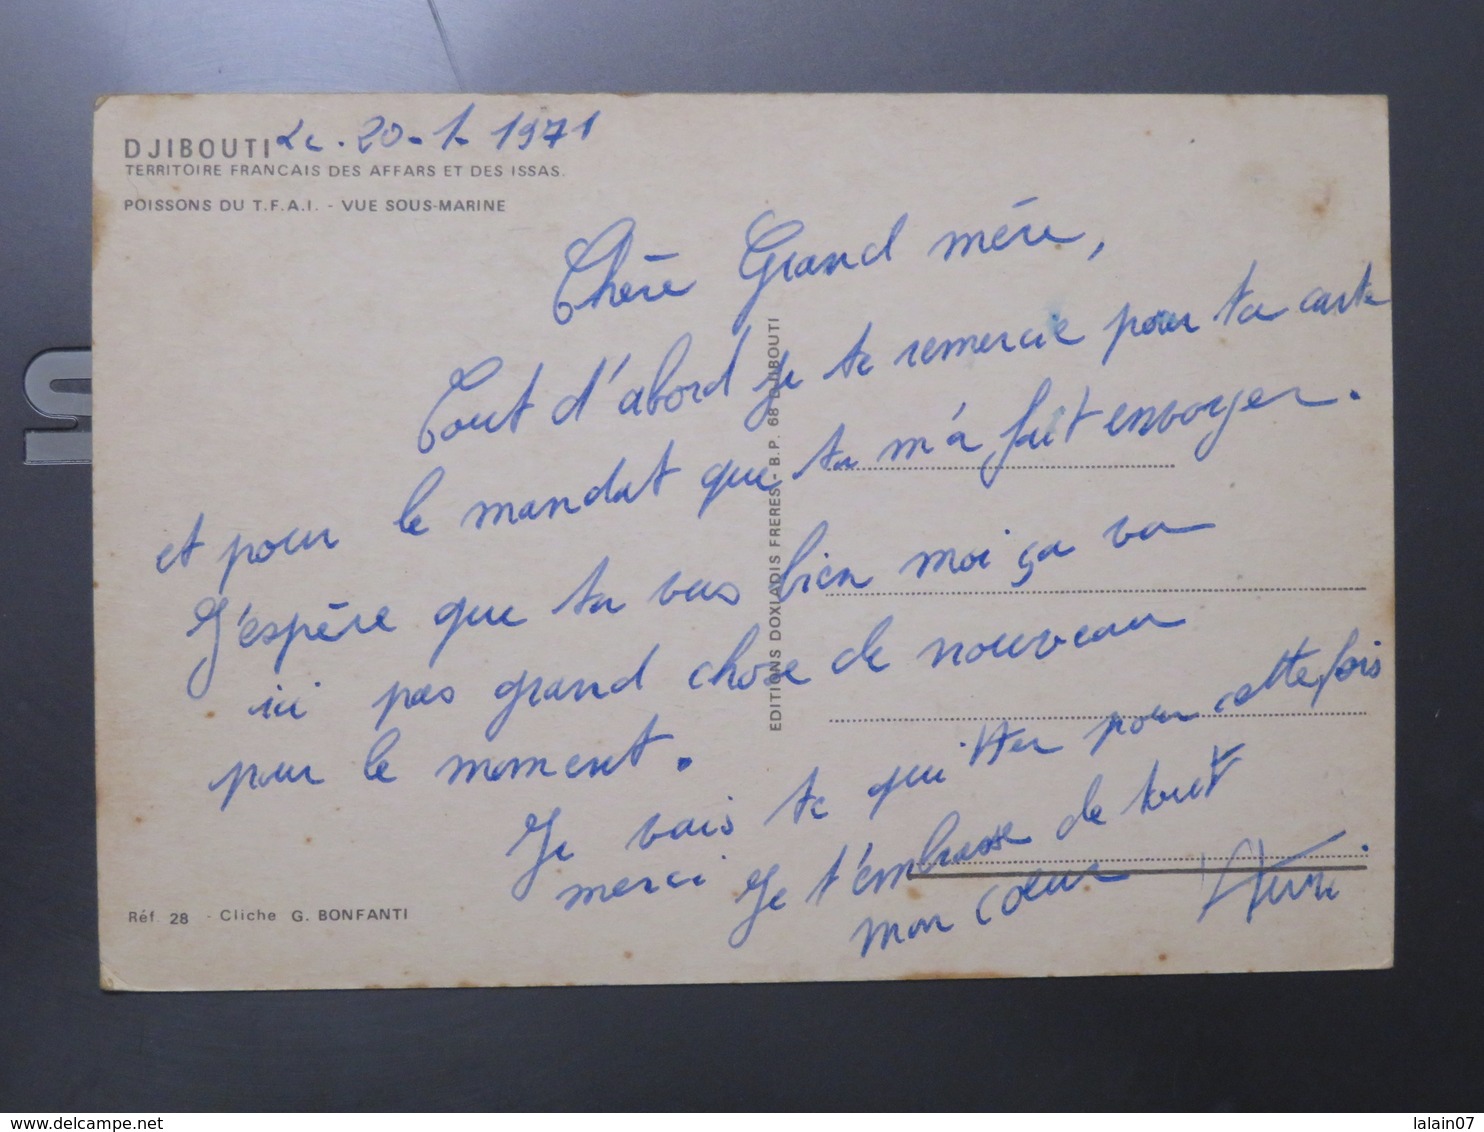 DJIBOUTI Le . 20 - 1 - 1971
TERRITOIRE FRANCAIS DES AFFARS ET DES ISSAS.
POISSONS DU T.F.A.I. - VUE SOUS-MARINE
Chère Grand mére,
Tout d'abord je te remercie pour ta carte
et pour le mandat que tu m'a fait envoyer.
J'espère que tu vas bien moi ça va
ici pas grand chose de nouveau
pour le moment.
Je vais te quitter pour cette fois
merci Je t'embrasse de tout
mon coeur Henri
EDITIONS DOXIADIS FRERES - B.P. 68 DJIBOUTI
Réf. 28 - Cliche G. BONFANTI
delcampe.net
lalain07